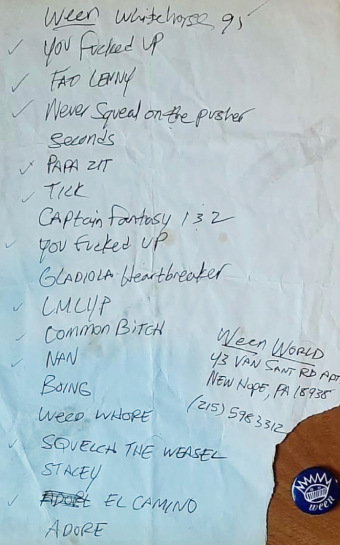 Ween Whitehorse 95
✓ YOU Fucked UP
✓ FAT LENNY
✓ Never Squeal on the pusher
Seconds
✓ PAPA ZIT
✓ TICK
CAPtain Fantasy 1 3 2
✓ you Fucked UP
GLADIOLA Heartbreaker
✓ LMLYP
✓ Common BITCH
✓ NAN
BOING
WEED WHORE
✓ SQUELCH THE WEASEL
STACEY
✓ ADORE EL CAMINO
ADORE
Ween WORLD
43 VAN SANT RD APT
NEW HOPE, PA 18938
(215) 598 3312
ween